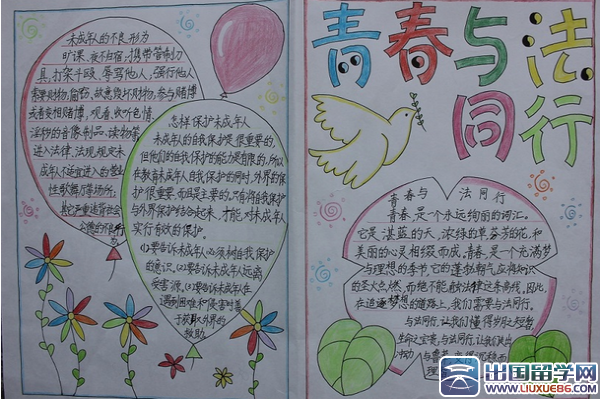 未成年人的不良形为
旷课、夜不归宿,携带管制刀
具,打架斗殴、辱骂他人,强行他人
索要财物,偷窃、故意毁坏财物,参与赌博
或者变相赌博,观看、收听色情、
淫秽的音像制品、读物等
进入法律、法规规定未
成年人不适宜进入的营业
性歌舞厅等场所,
其它严重违背社会
公德的不良行
怎样保护未成年人
未成年的自我保护是很重要的,
但他们的自我保护的能力是有限的,所以
在教育未成年人自我保护的同时,外界的保
护很重要,而且是主要的,只有将自我保护
与外界保护结合起来,才能对未成年人
实行有效的保护。
(1)要告诉未成年人必须树自我保护
的意识。(2)要告诉未成年人远离
受害源,(3)要告诉未成年人在
遇到困难和侵害时善
于获取外界的
救助。
青春与法
同行
青春与 法同行
青春,是个永远绚丽的词汇。
它是湛蓝的天、浓绿的草、芬芳的花,和
美丽的心灵相缀而成。青春,是一个充满梦
与理想的季节,它的蓬勃朝气,应将知识
的圣火点燃,而绝不能触法律这条高线,因此,
在追逐梦想的道路上,我们需要与法同行。
与法同行,让我们懂得岁月之短暂,
生命之宝贵,与法同行,让我们
出国留学网
WWW.LIUXUE86.COM